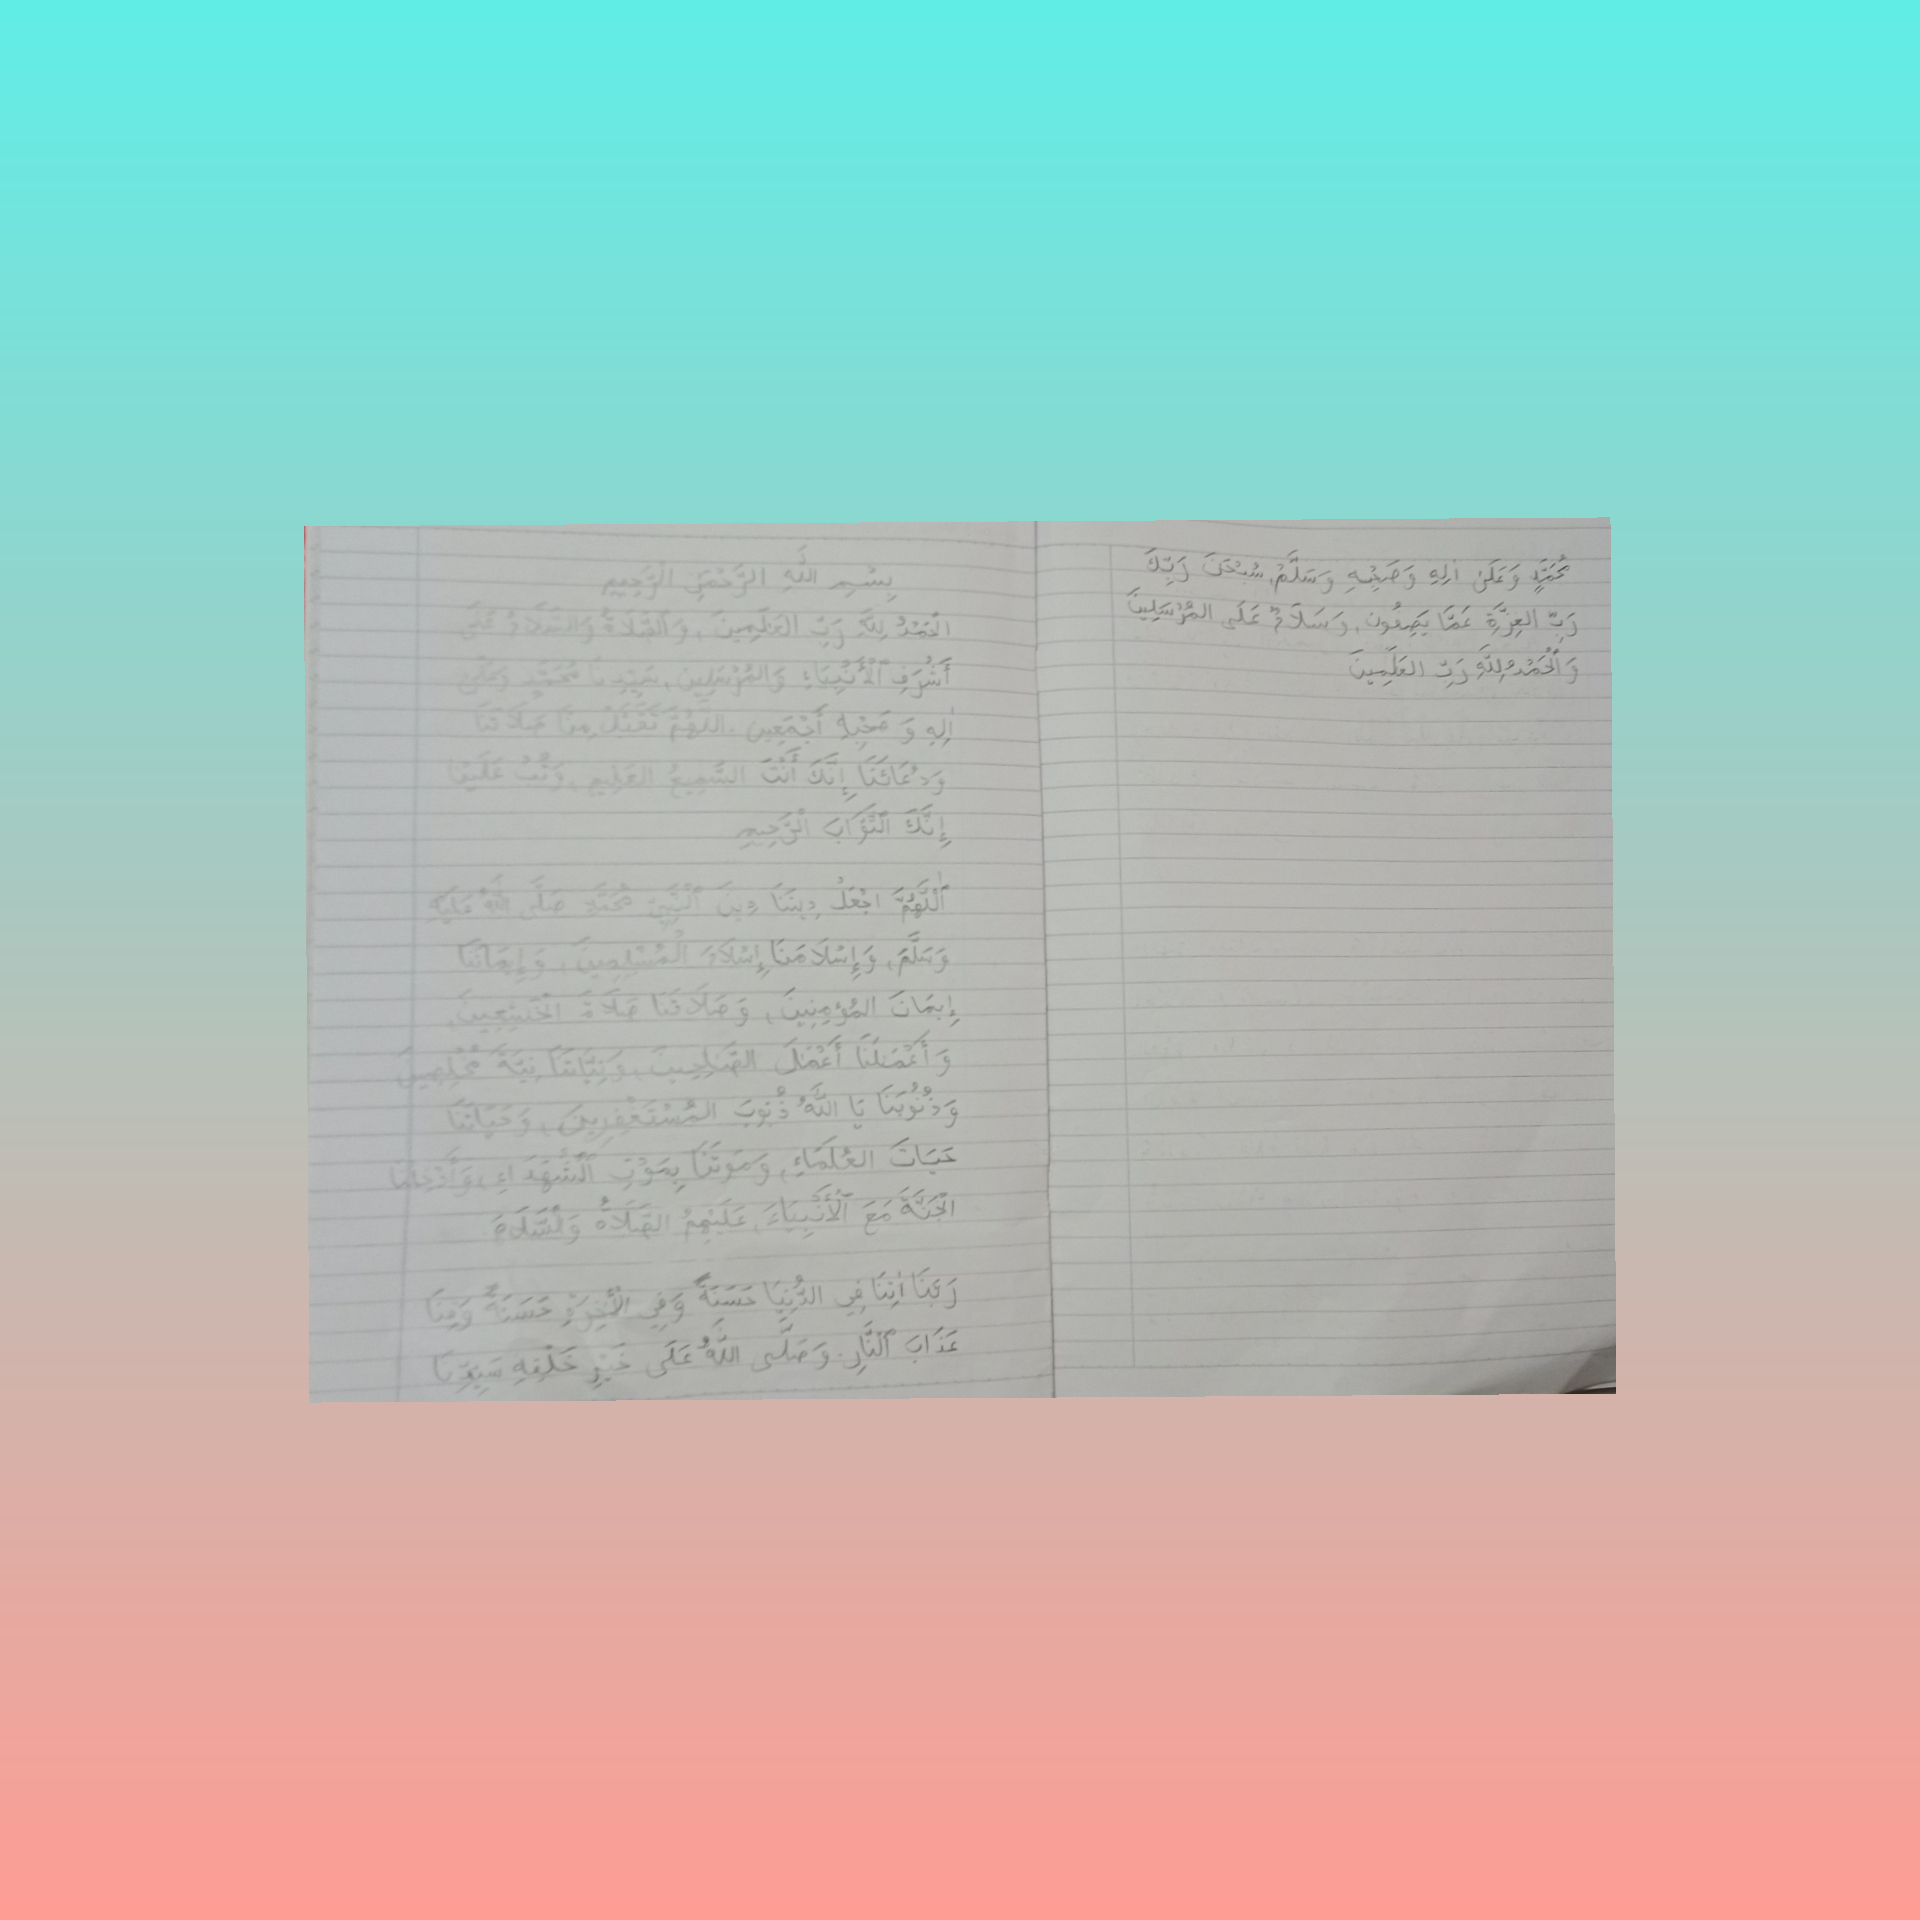 بِسْمِ اللَّهِ الرَّحْمَنِ الرَّحِيمِ
الْحَمْدُ لِلَّهِ رَبِّ العَلَمِينَ، وَالصَّلَاةُ وَالسَّلَامُ عَلَى
أَشْرَفِ الْأَنْبِيَاءِ وَالمُرْسَلِينَ، سَيِّدِنَا مُحَمَّدٍ وَعَلَى
اٰلِهِ وَ صَحْبِهِ أَجْمَعِينَ. اللَّهُمَّ تَقَبَّلْ مِنَّا صَلَاتَنَا
وَدُعَائَنَا إِنَّكَ أَنْتَ السَّمِيعُ العَلِيمِ، وَتُبْ عَلَيْنَا
إِنَّكَ التَّوَّابَ الرَّحِيمِ
اللَّهُمَّ اجْعَلْ دِينَنَا دِينَ النَّبِيِّ مُحَمَّدٍ صَلَّى اللَّهُ عَلَيْهِ
وَسَلَّمَ، وَإِسْلَامَنَا إِسْلَامَ الْمُسْلِمِينَ، وَإِيمَانَنَا
إِيمَانَ المُؤمِنِينَ، وَصَلَاتَنَا صَلَاةَ الْخَشِعِينَ،
وَأَعْمَلَنَا أَعْمَلَ الصَّلِحِينَ، وَنِيَّاتَنَا نِيَّةَ مُخْلِصِينَ
وَذُنُوبَنَا يَا اللَّهُ ذُنُوبَ المُسْتَغْفِرِينَ، وَحَيَاتَنَا
حَيَاتَ العُلَمَاءِ، وَمَوتَنَا بِمَوْتِ الشُّهَدَاءِ، وَأَدْخِلْنَا
الْجَنَّةَ مَعَ الْأَنْبِيَاءَ، عَلَيْهِمُ الصَّلَاةُ وَلسَّلَامَ
رَبَّنَا اٰتِنَا فِي الدُّنْيَا حَسَنَةً وَفِي الْأَخِرَةِ حَسَنَةً وَقِنَا
عَذَابَ النَّارِ. وَصَلَّى اللَّهُ عَلَى خَيْرِ خَلْقِهِ سَيِّدِنَا
مُحَمَّدٍ وَعَلَىٰ اٰلِهِ وَصَحْبِهِ وَسَلَّمْ، سُبْحَنَ رَبِّكَ
رَبِّ العِزَّةِ عَمَّا يَصِفُونَ، وَسَلَامٌ عَلَى المُرْسَلِينَ
وَالْحَمْدُ لِلَّهِ رَبِّ العَلَمِينَ